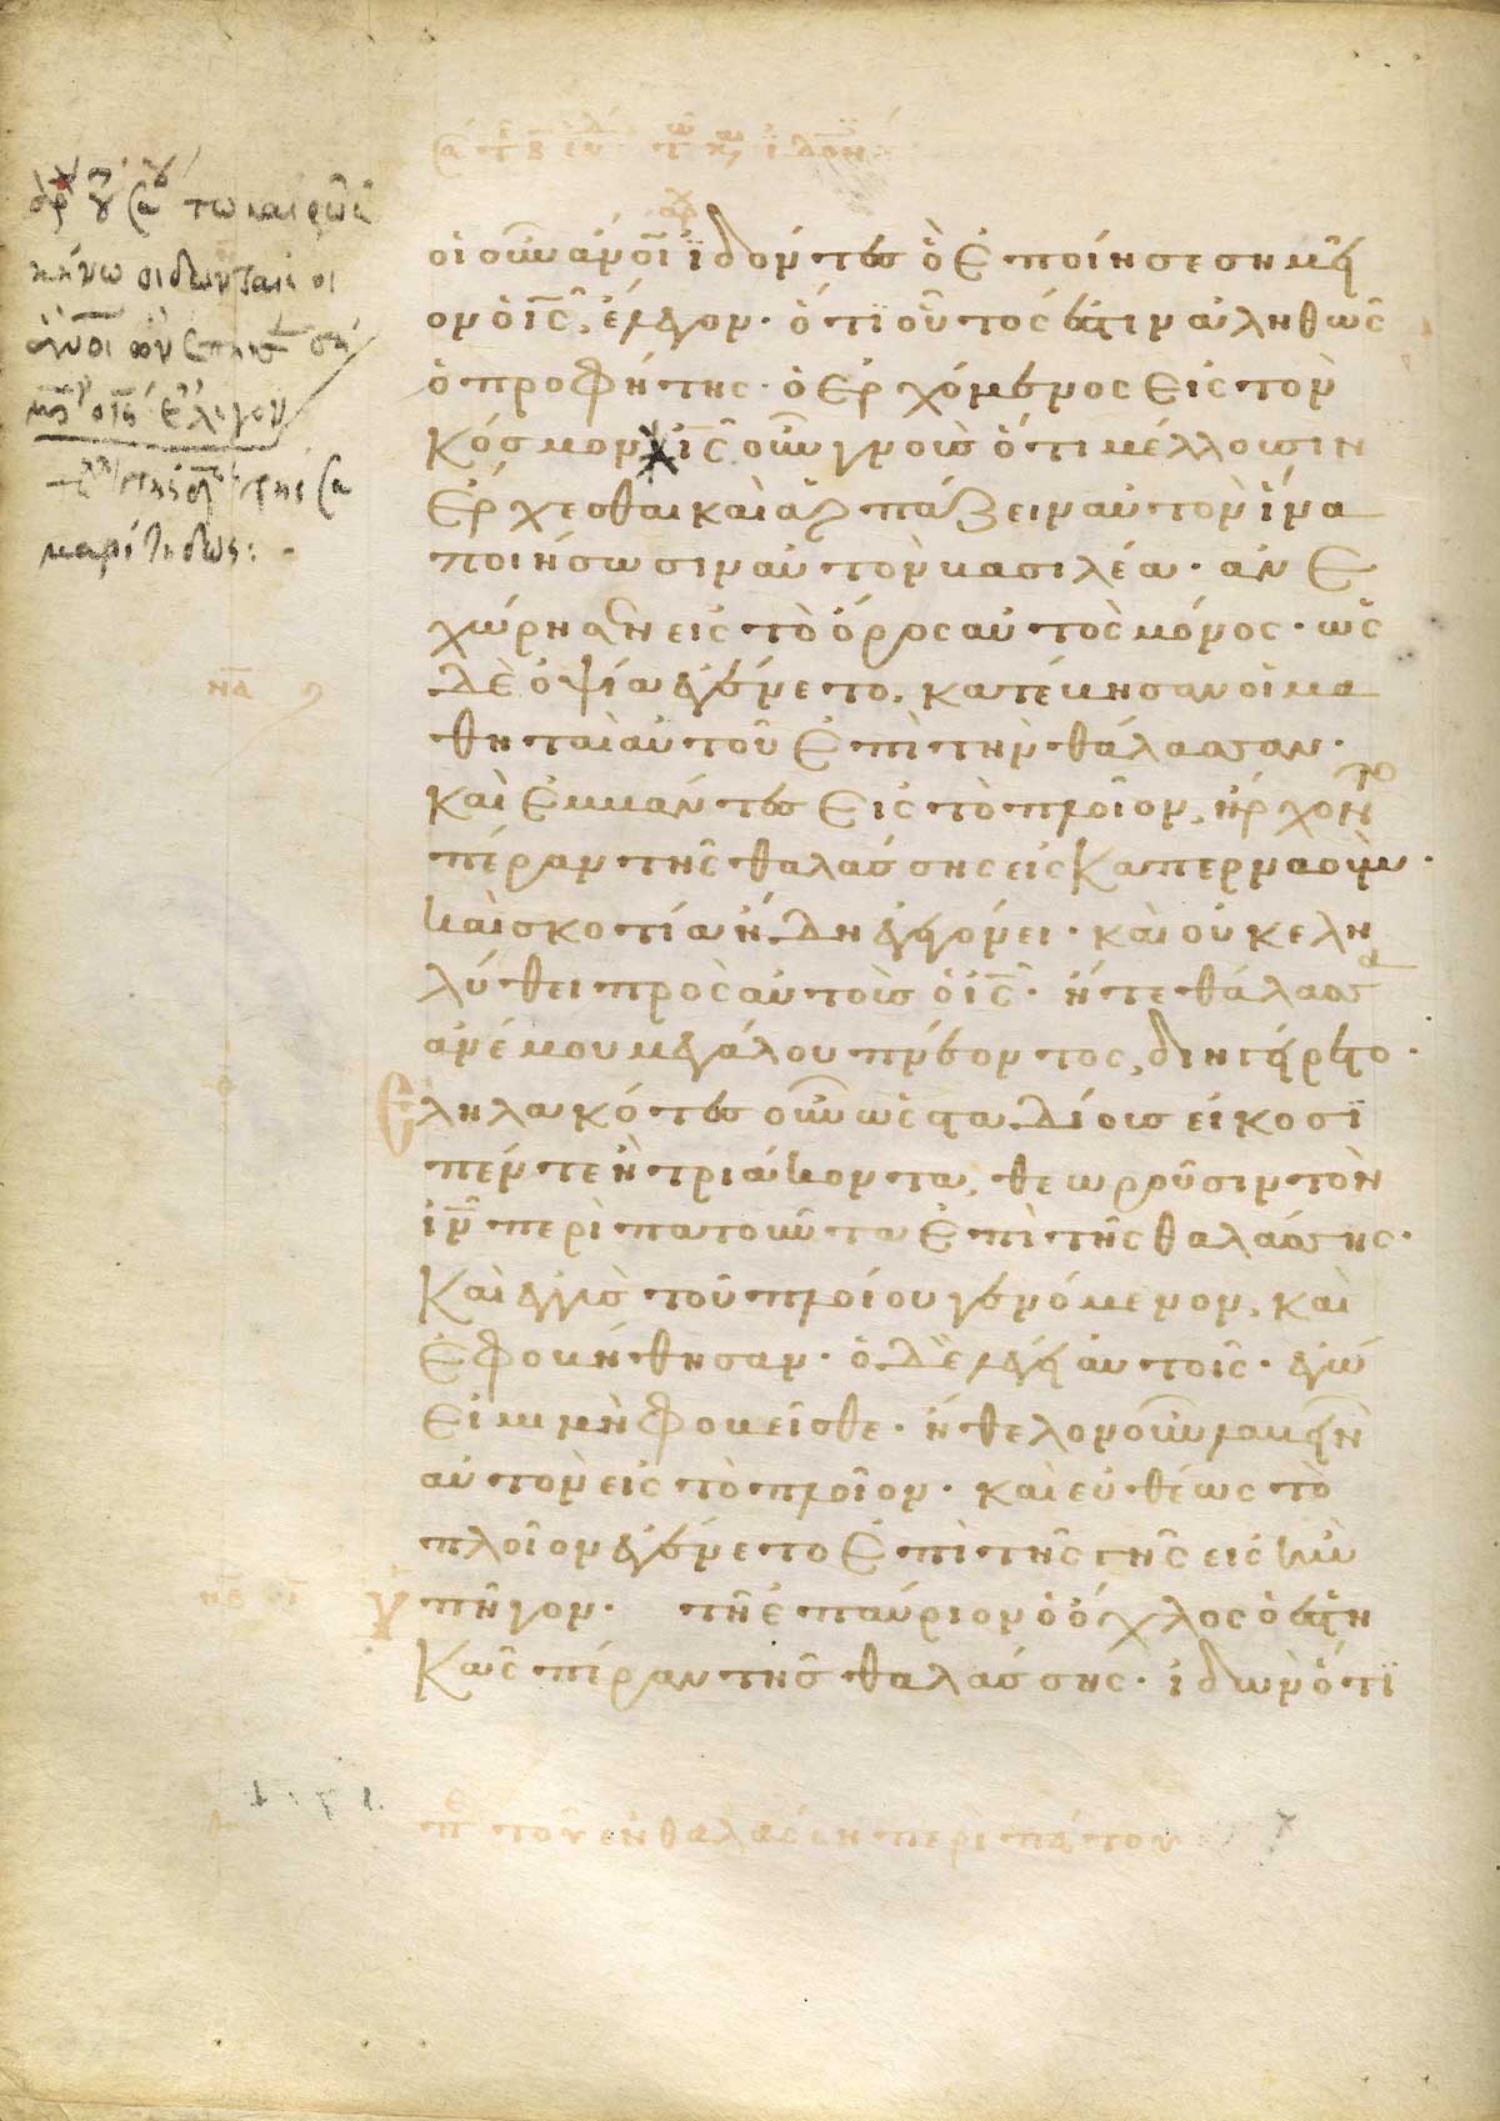 οἱ οὖν ἄνοι ἰδόντες ὃ ἐποίησε σημεῖ
ον ὁ ις, ἔλεγον· ὅτι οὗτός ἐστιν ἀληθῶς
ὁ προφήτης· ὁ ἐρχόμενος εἰς τὸν
κόσμον ις οὖν γνοὺς ὅτι μέλλουσιν
ἔρχεσθαι καὶ ἁρπάζειν αὐτὸν ἵνα
ποιήσωσιν αὐτὸν βασιλέα· ἀνε
χώρησεν εἰς τὸ ὄρος αὐτὸς μόνος· ὡς
δὲ ὀψία ἐγένετο, κατέβησαν οἱ μα
θηταὶ αὐτοῦ ἐπὶ τὴν θάλασσαν·
καὶ ἐμβάντες εἰς τὸ πλοῖον, ἤρχοντο
πέραν τῆς θαλάσσης εἰς καπερναούμ·
καὶ σκοτία ἤδη ἐγεγόνει· καὶ οὐκ ἐλη
λύθει πρὸς αὐτοὺς ὁ ις· ἥ τε θάλασσα
ἀνέμου μεγάλου πνέοντος, διηγείρετο·
ἐληλακότες οὖν ὡς σταδίους εἴκοσι
πέντε ἢ τριάκοντα, θεωροῦσιν τὸν
ιν περιπατοῦντα ἐπὶ τῆς θαλάσσης·
καὶ ἐγγὺς τοῦ πλοίου γενόμενον, καὶ
ἐφοβήθησαν· ὁ δὲ λέγει αὐτοῖς· ἐγώ
εἰμι μὴ φοβεῖσθε· ἤθελον οὖν λαβεῖν
αὐτὸν εἰς τὸ πλοῖον· καὶ εὐθέως τὸ
πλοῖον ἐγένετο ἐπὶ τῆς γῆς εἰς ἣν
ὑπῆγον· τῇ ἐπαύριον ὁ ὄχλος ὁ ἑστη
κὼς πέραν τῆς θαλάσσης· ἰδὼν ὅτι
π τοῦ ἐν θαλάσση περιπάτου